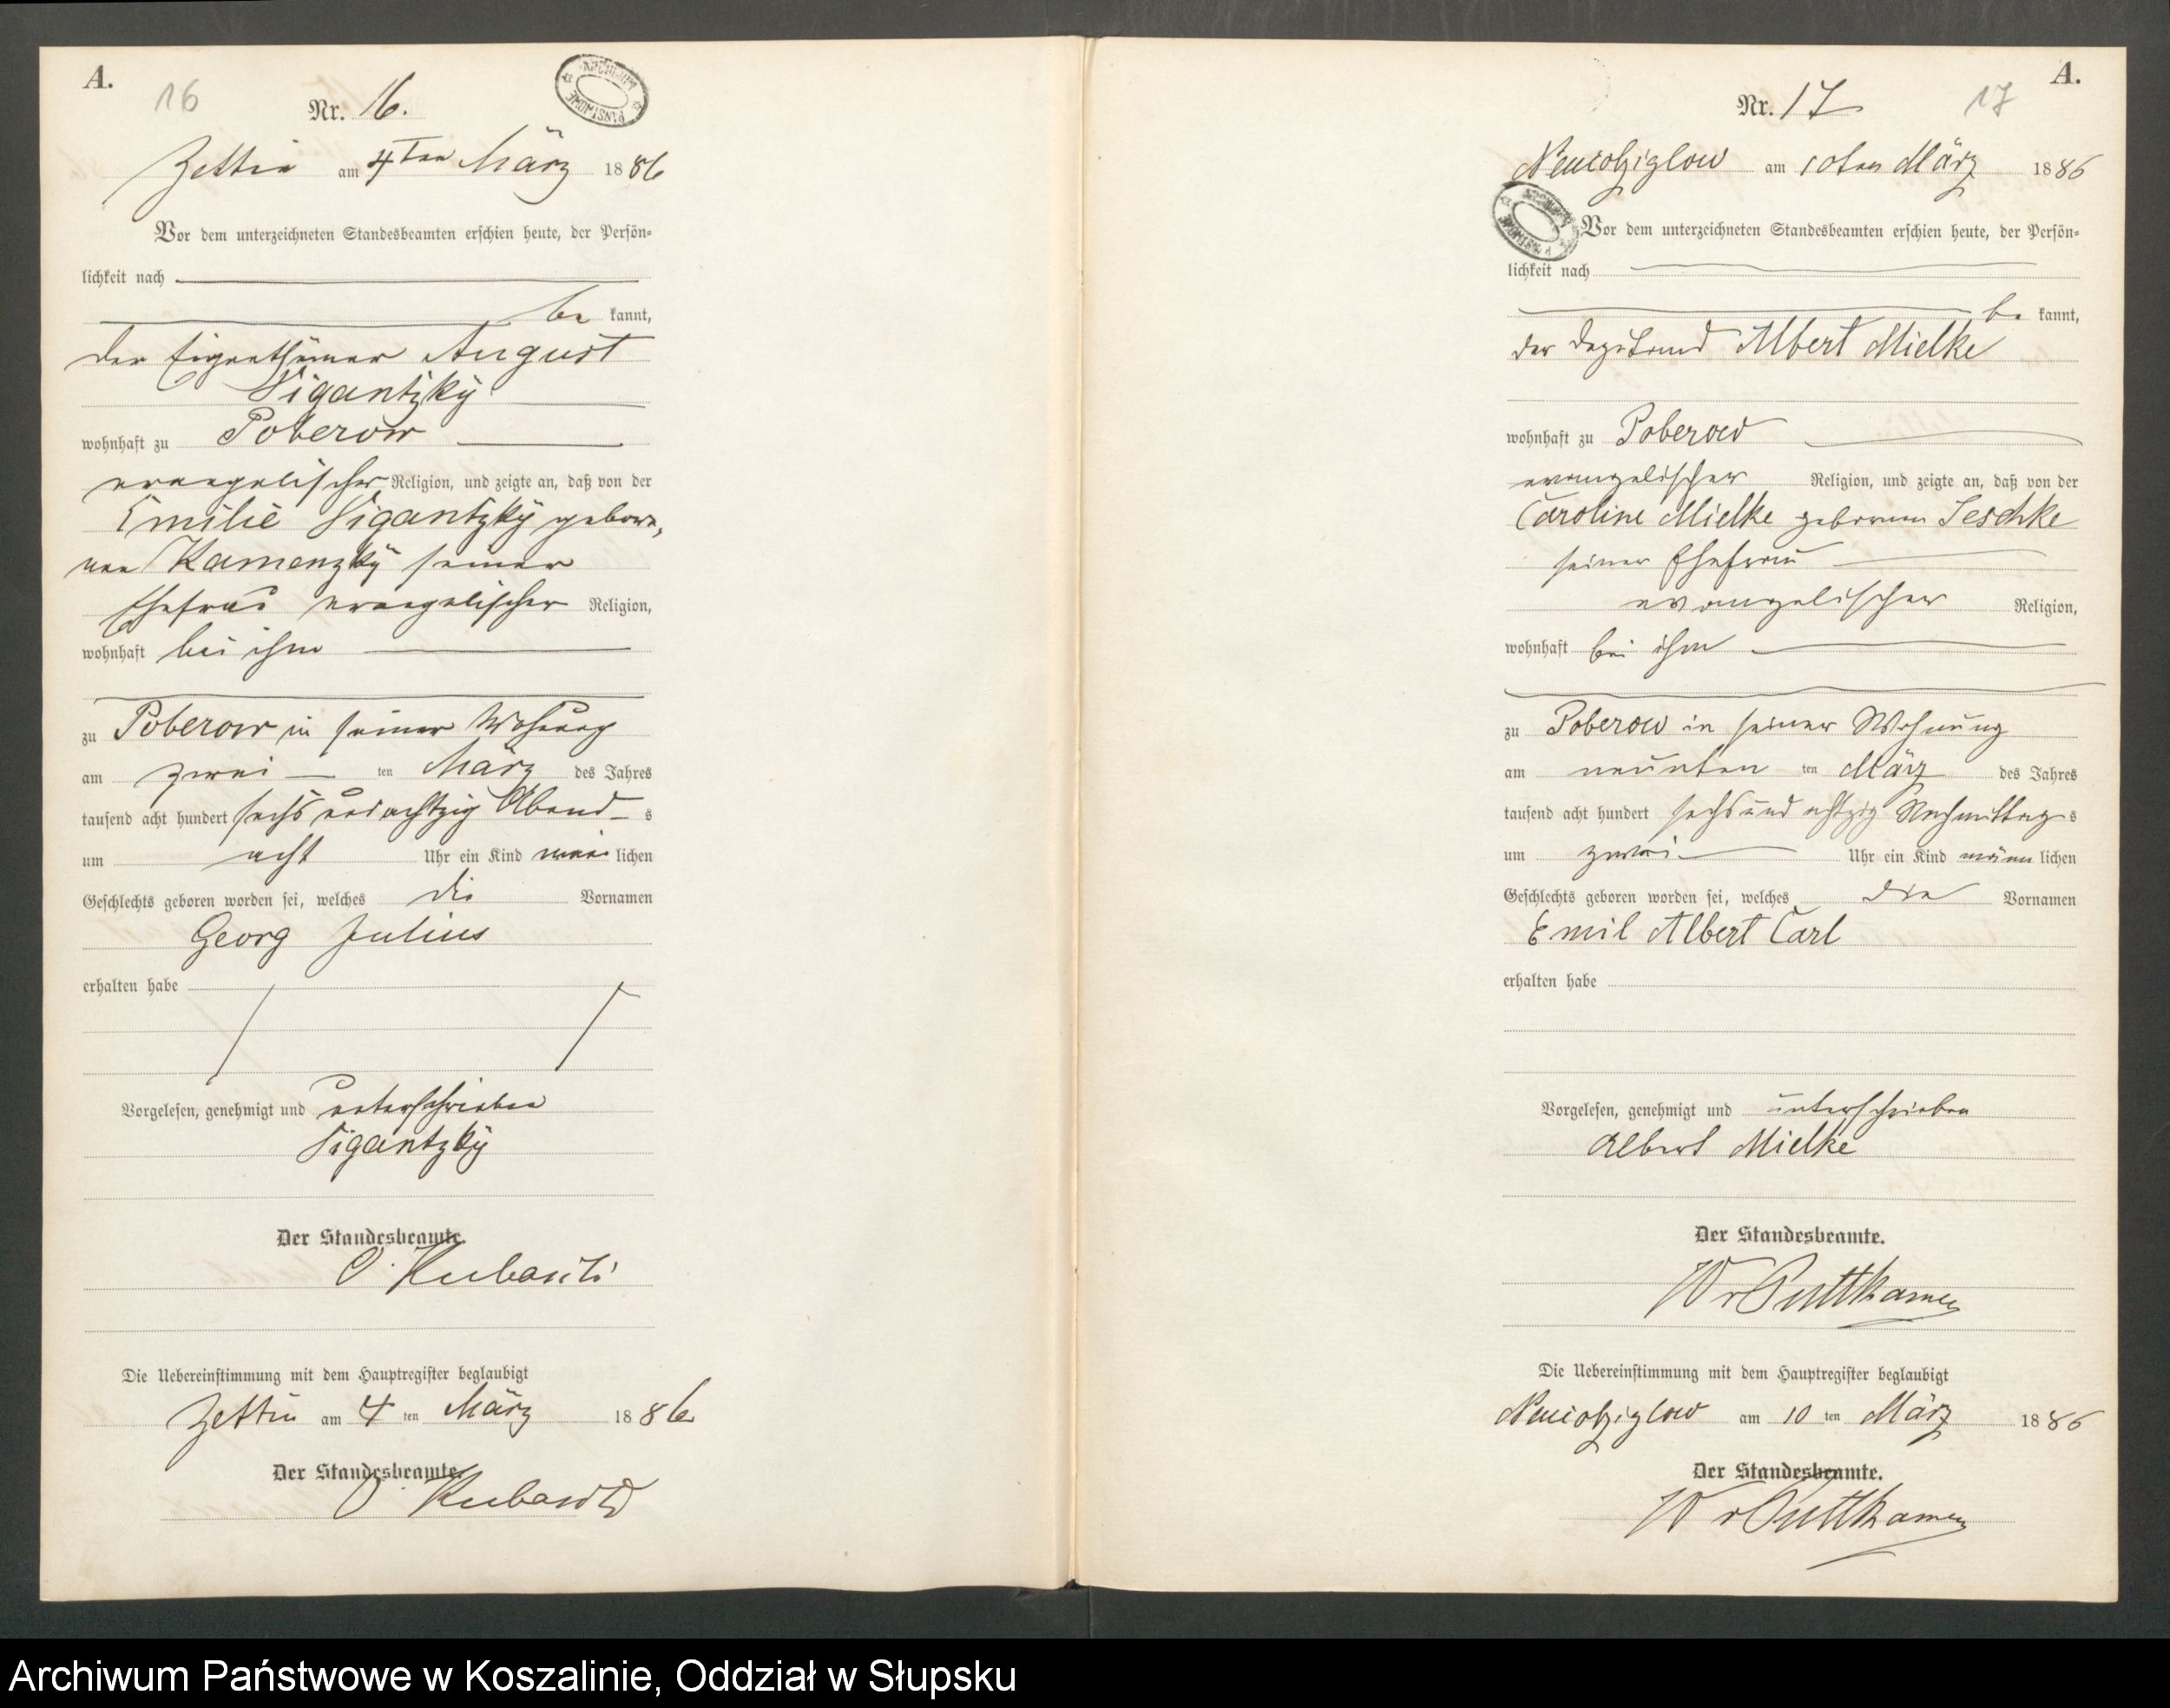 A.
16
Nr. 16.
ARCHIWUM PAŃSTWOWE
Zettin am 4ten März 1886
Vor dem unterzeichneten Standesbeamten erschien heute, der Persön-
lichkeit nach
be kannt,
der Eigenthümer August
Sigantzky
wohnhaft zu Poberow
evangelischer Religion, und zeigte an, daß von der
Emilie Sigantzky gebore-
nen Kamenzky seiner
Ehefrau evangelischer Religion,
wohnhaft bei ihm
zu Poberow in seiner Wohnung
am zwei ten März des Jahres
tausend acht hundert sechs und achtzig Abend s
um acht Uhr ein Kind männ lichen
Geschlechts geboren worden sei, welches die Vornamen
Georg Julius
erhalten habe
Vorgelesen, genehmigt und unterschrieben
Sigantzky
Der Standesbeamte.
O.
Die Uebereinstimmung mit dem Hauptregister beglaubigt
Zettin am 4 ten März 1886
Der Standesbeamte.
O.
A.
17
Nr. 17
Neukolziglow am 10ten März 1886
ARCHIWUM PAŃSTWOWE
Vor dem unterzeichneten Standesbeamten erschien heute, der Persön-
lichkeit nach
be kannt,
der Deputant Albert Mielke
wohnhaft zu Poberow
evangelischer Religion, und zeigte an, daß von der
Caroline Mielke geborenen Jeschke
seiner Ehefrau
evangelischer Religion,
wohnhaft bei ihm
zu Poberow in seiner Wohnung
am neunten ten März des Jahres
tausend acht hundert sechs und achtzig Nachmittag s
um zwei Uhr ein Kind männ lichen
Geschlechts geboren worden sei, welches die Vornamen
Emil Albert Carl
erhalten habe
Vorgelesen, genehmigt und unterschrieben
Albert Mielke
Der Standesbeamte.
W v Puttkamer
Die Uebereinstimmung mit dem Hauptregister beglaubigt
Neukolziglow am 10 ten März 1886
Der Standesbeamte.
W v Puttkamer
Archiwum Państwowe w Koszalinie, Oddział w Słupsku